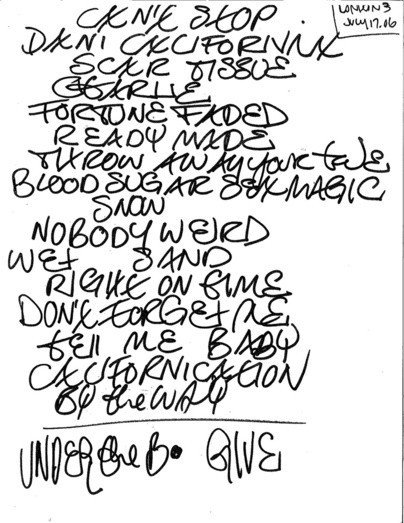 CAN'T STOP
LONDON 3
JULY 17.06
DANI CALIFORNIA
SCAR TISSUE
CHARLIE
FORTUNE FADED
READY MADE
THROW AWAY your teLE
BLOOD SUGAR SEX MAGIC
SNOW
NOBODY WEIRD
WEt SAND
RIGHT ON tIME
DON'T FORGEt ME
tEll ME BABY
CALIFORNICATION
BY the WAY
UNDER the B. GIVE